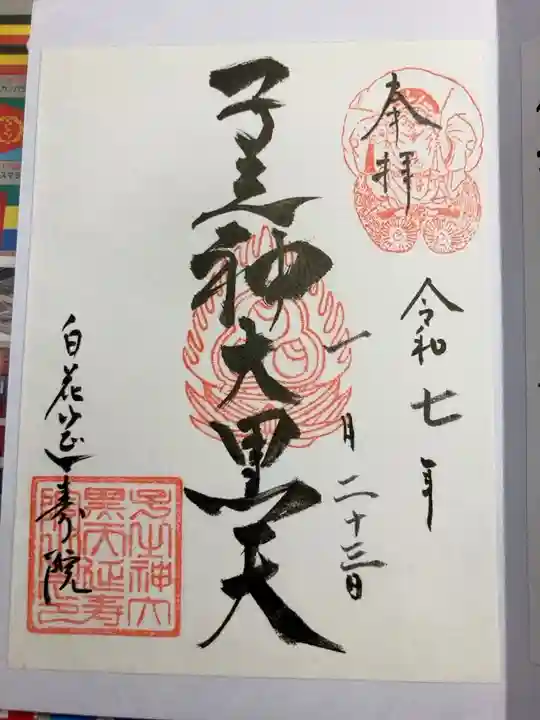 奉拝
令和七年
一月二十三日
子之神大黒天
白花山延寿院
子之神大
黒天延寿